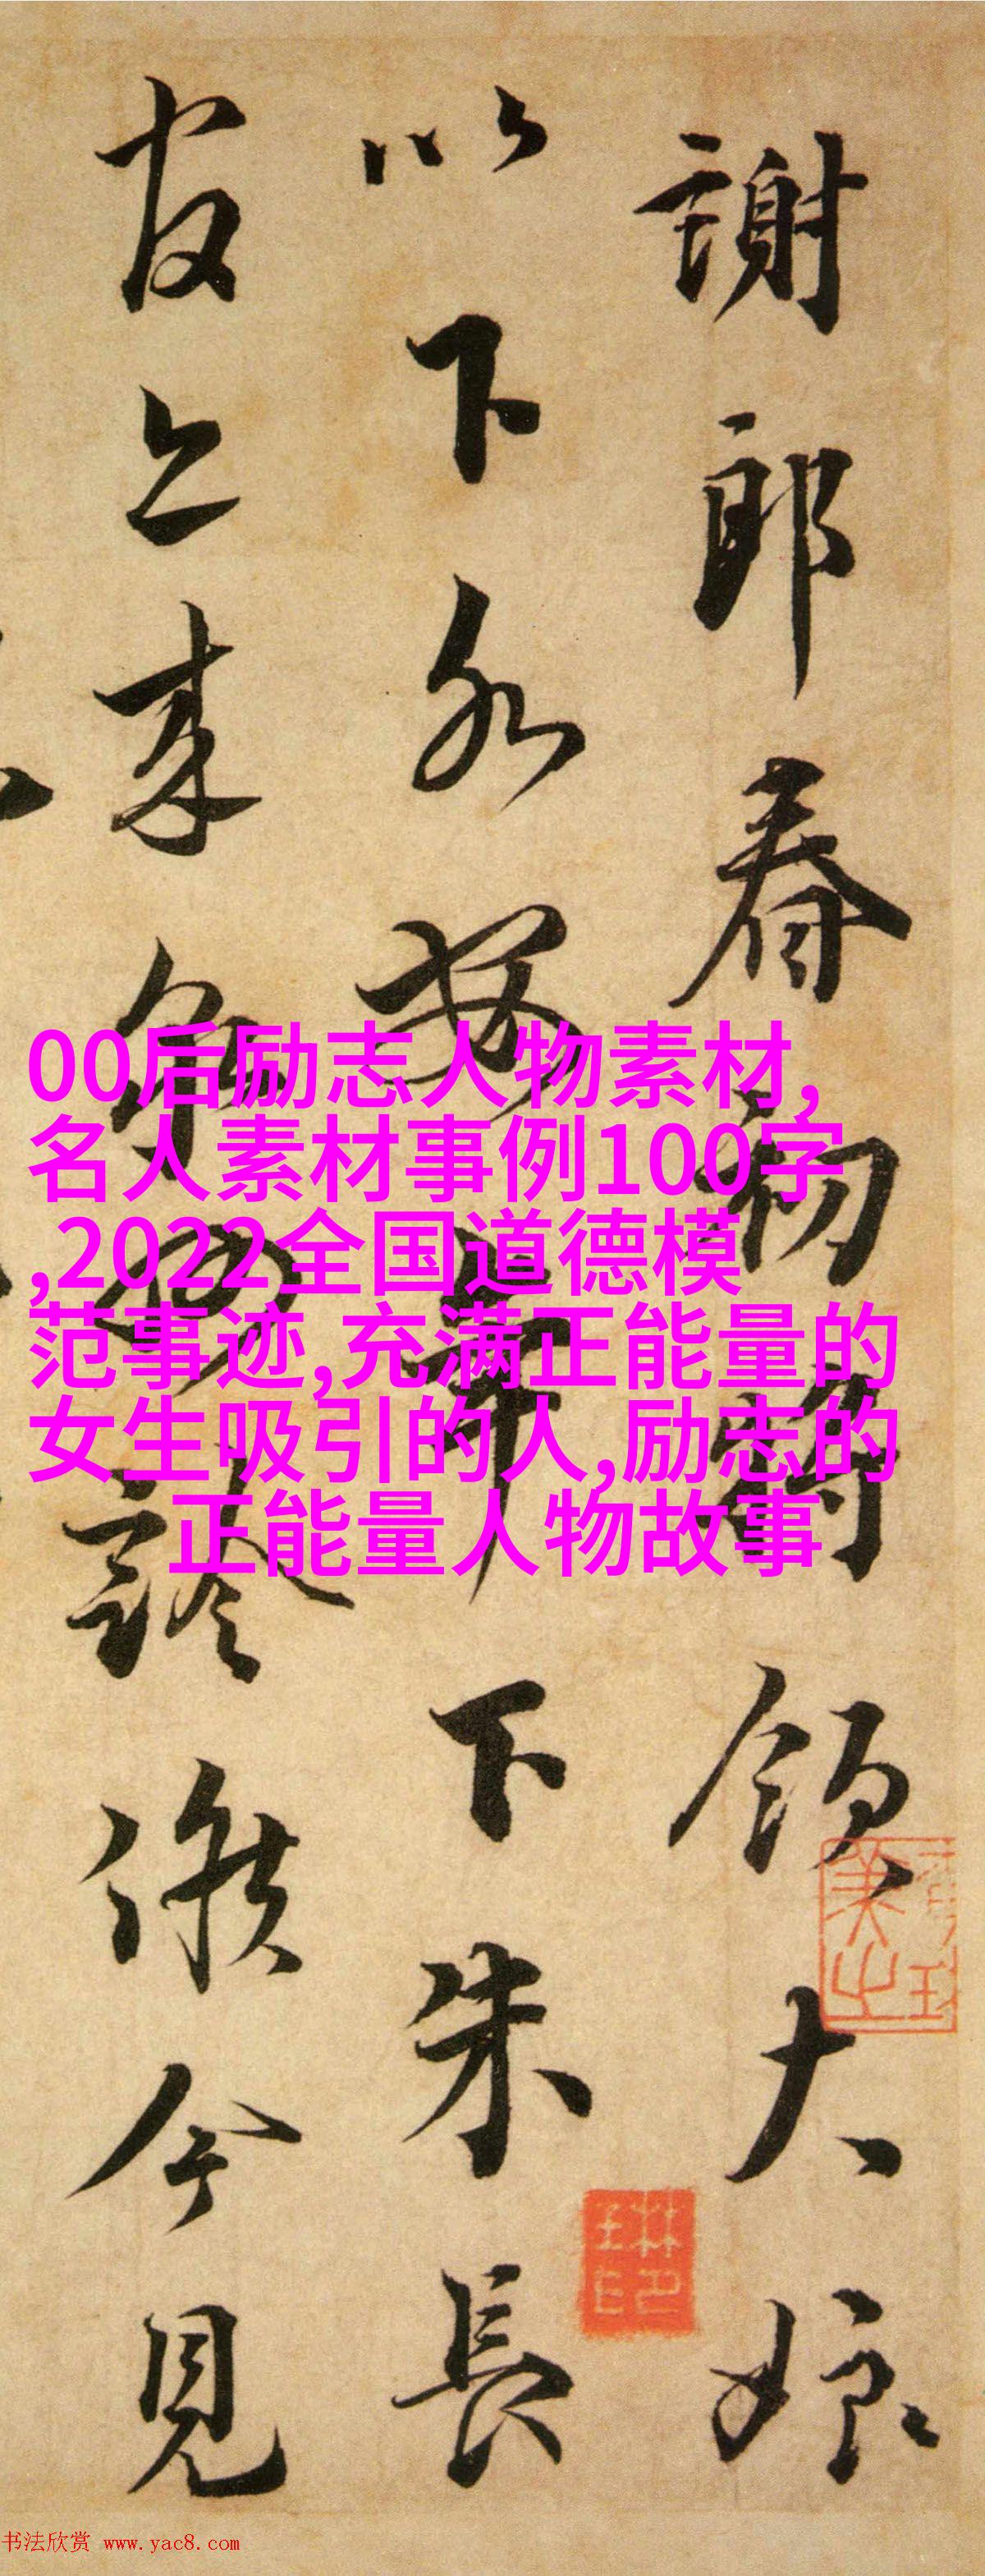 謝郎春初將領大娘
以下各安年下朱長
官亦來泉州診候今見
00后励志人物素材,
名人素材事例100字
,2022全国道德模
范事迹,充满正能量的
女生吸引的人,励志的
正能量人物故事
书法欣赏 www.yac8.com